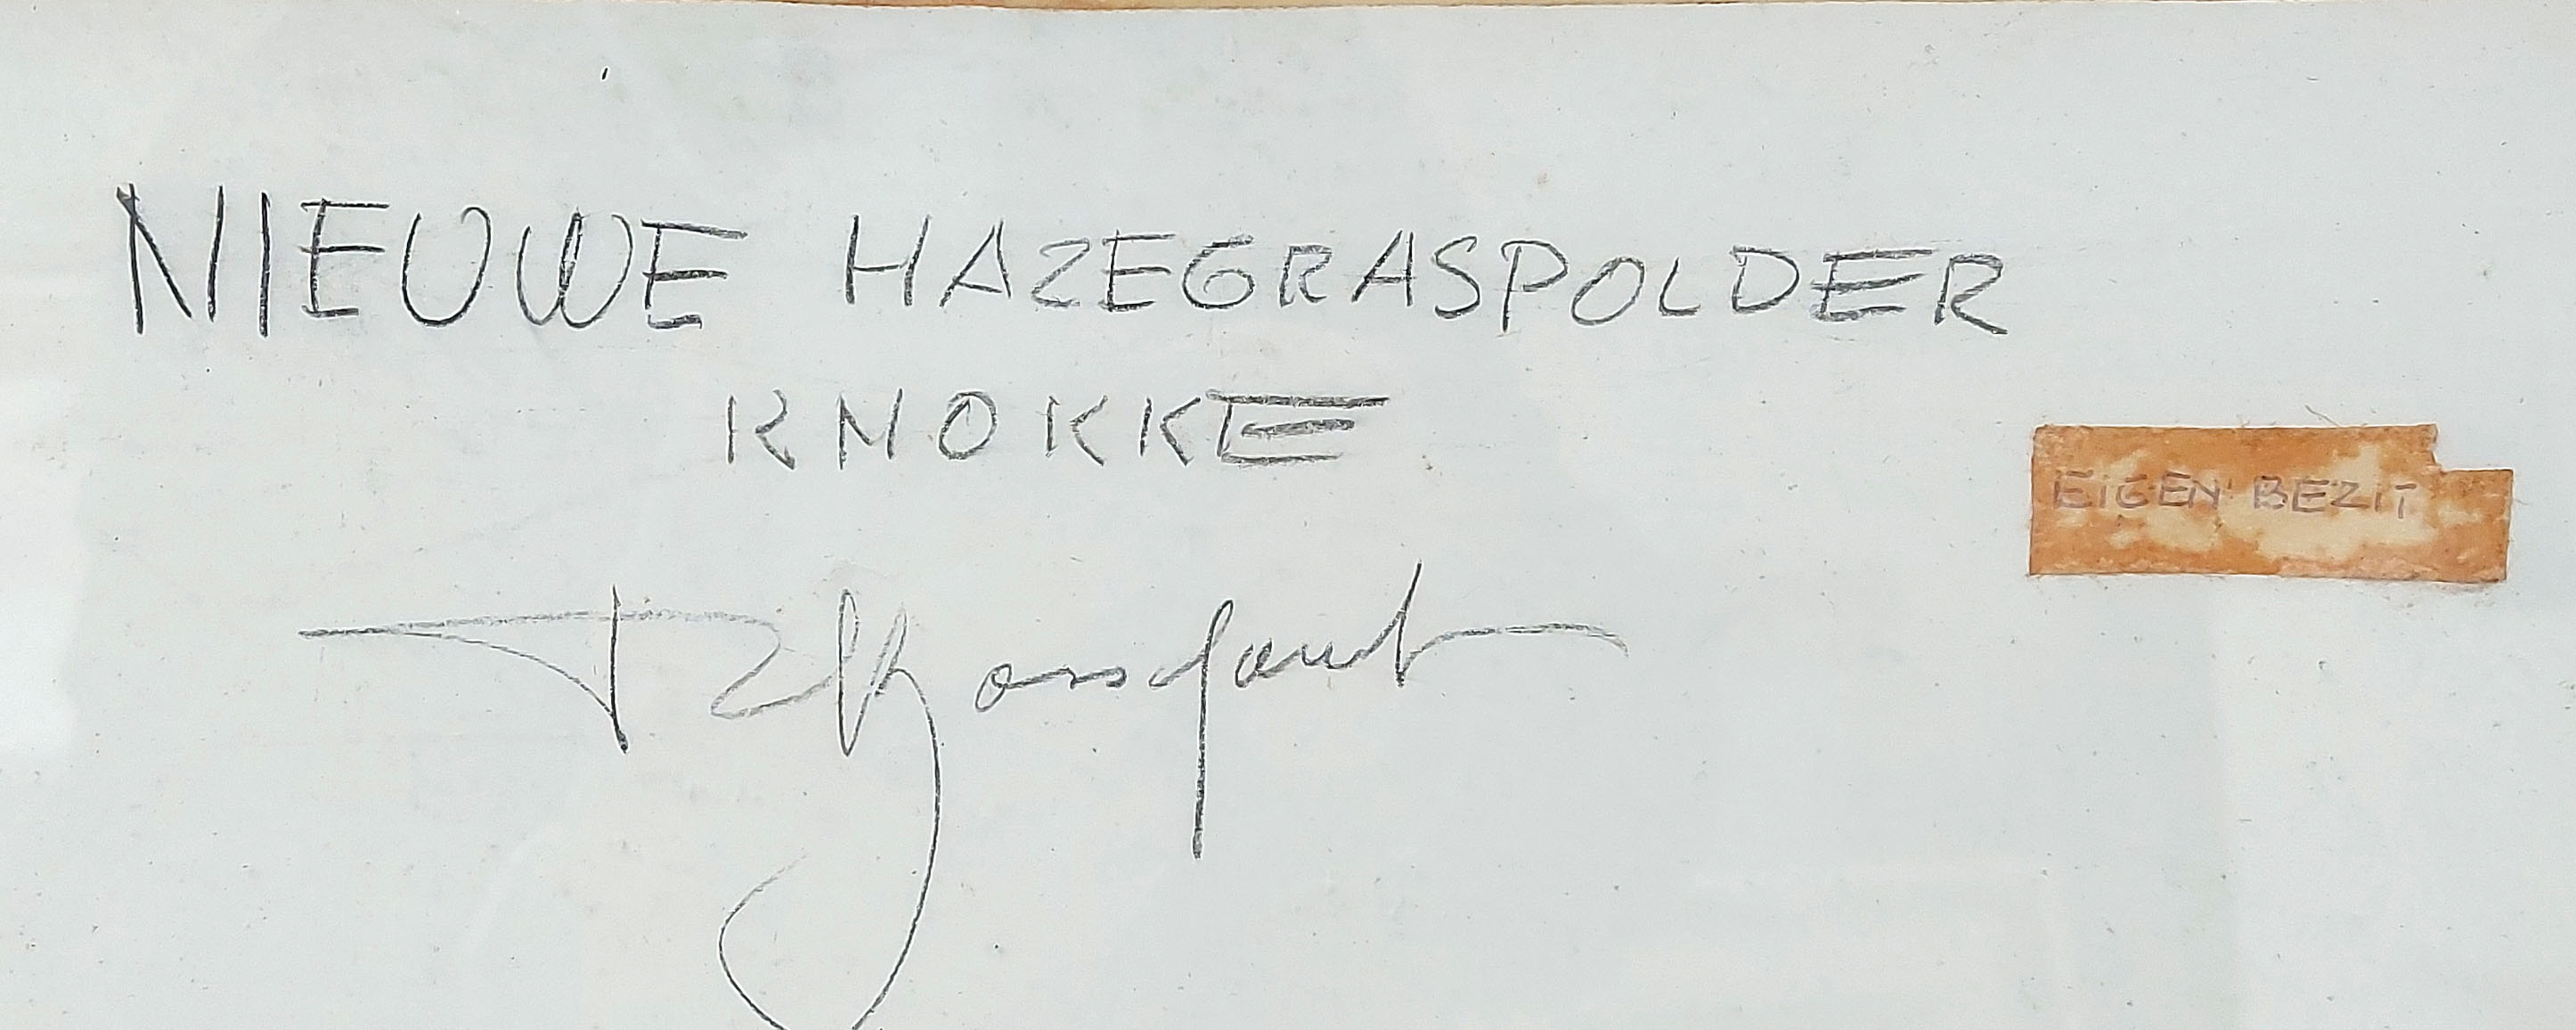 NIEUWE HAZEGRASPOLDER
KNOKKE
EIGEN BEZIT